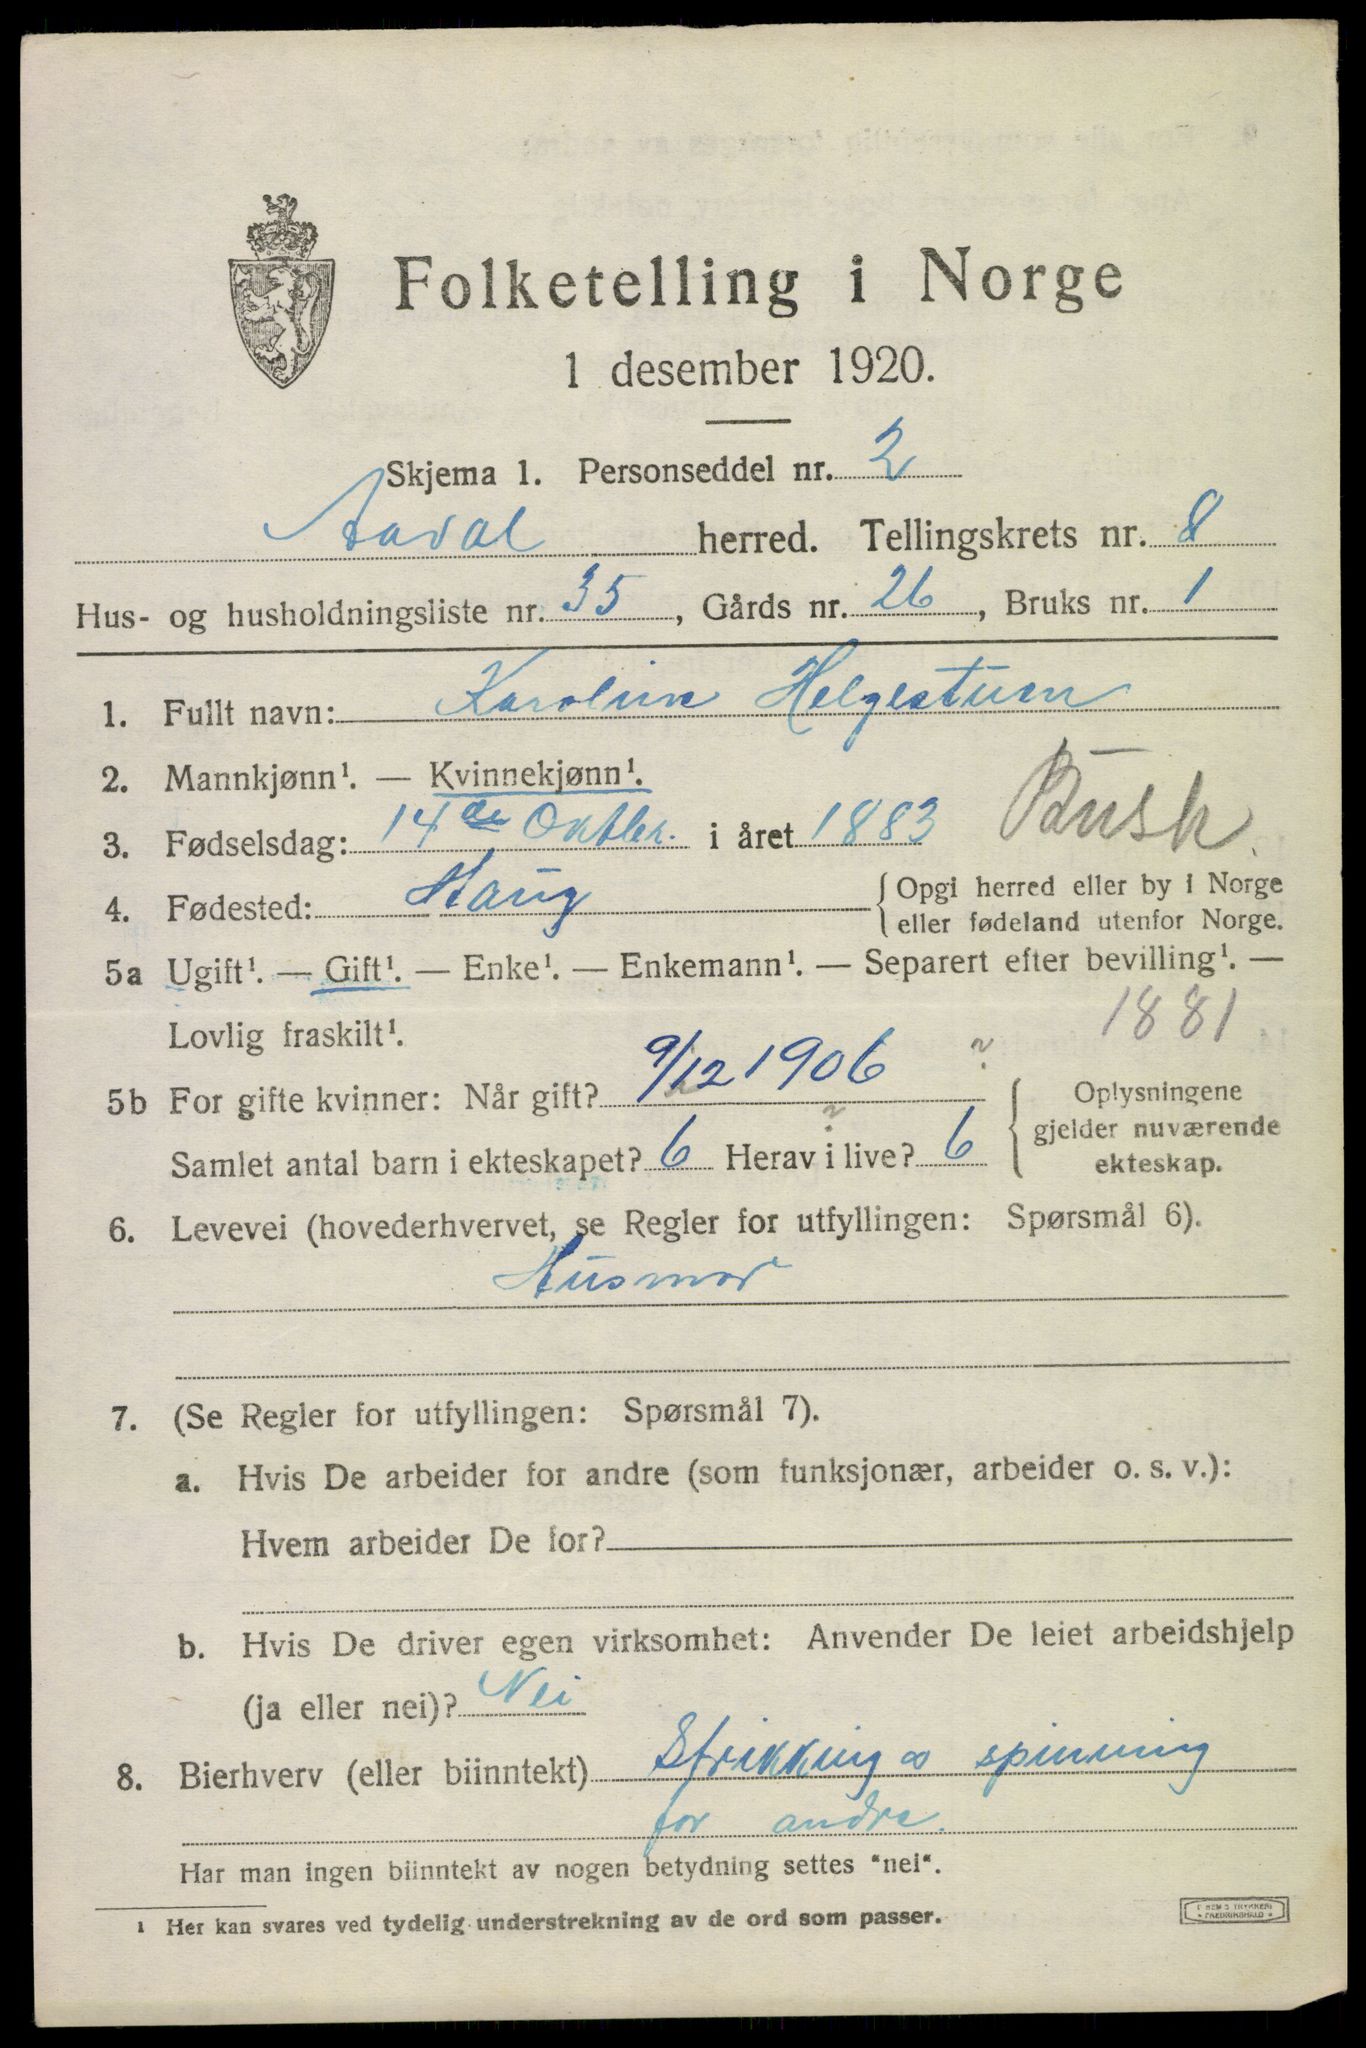 Folketelling i Norge
1 desember 1920.
Skjema 1. Personseddel nr. 2
Aadal herred. Tellingskrets nr. 8
Hus- og husholdningsliste nr. 35, Gårds nr. 26, Bruks nr. 1
1. Fullt navn: Karoline Helgestum
2. Mannkjønn¹. — Kvinnekjønn¹.
3. Fødselsdag: 14de Oktbr. i året 1883
Busk.
4. Fødested: Haug {Opgi herred eller by i Norge
eller fødeland utenfor Norge.
5a Ugift¹. — Gift¹. — Enke¹. — Enkemann¹. — Separert efter bevilling¹. —
Lovlig fraskilt¹.
1881
5b For gifte kvinner: Når gift? 9/12 1906 ?
Samlet antal barn i ekteskapet? 6 Herav i live? 6 ?
Oplysningene
gjelder nuværende
ekteskap.
6. Levevei (hovederhvervet, se Regler for utfyllingen: Spørsmål 6).
Husmor
7. (Se Regler for utfyllingen: Spørsmål 7).
a. Hvis De arbeider for andre (som funksjonær, arbeider o. s. v.):
Hvem arbeider De for?
b. Hvis De driver egen virksomhet: Anvender De leiet arbeidshjelp
(ja eller nei)? Nei
8. Bierhverv (eller biinntekt) Strikking o spinning
for andre.
Har man ingen biinntekt av nogen betydning settes "nei".
¹ Her kan svares ved tydelig understrekning av de ord som passer.